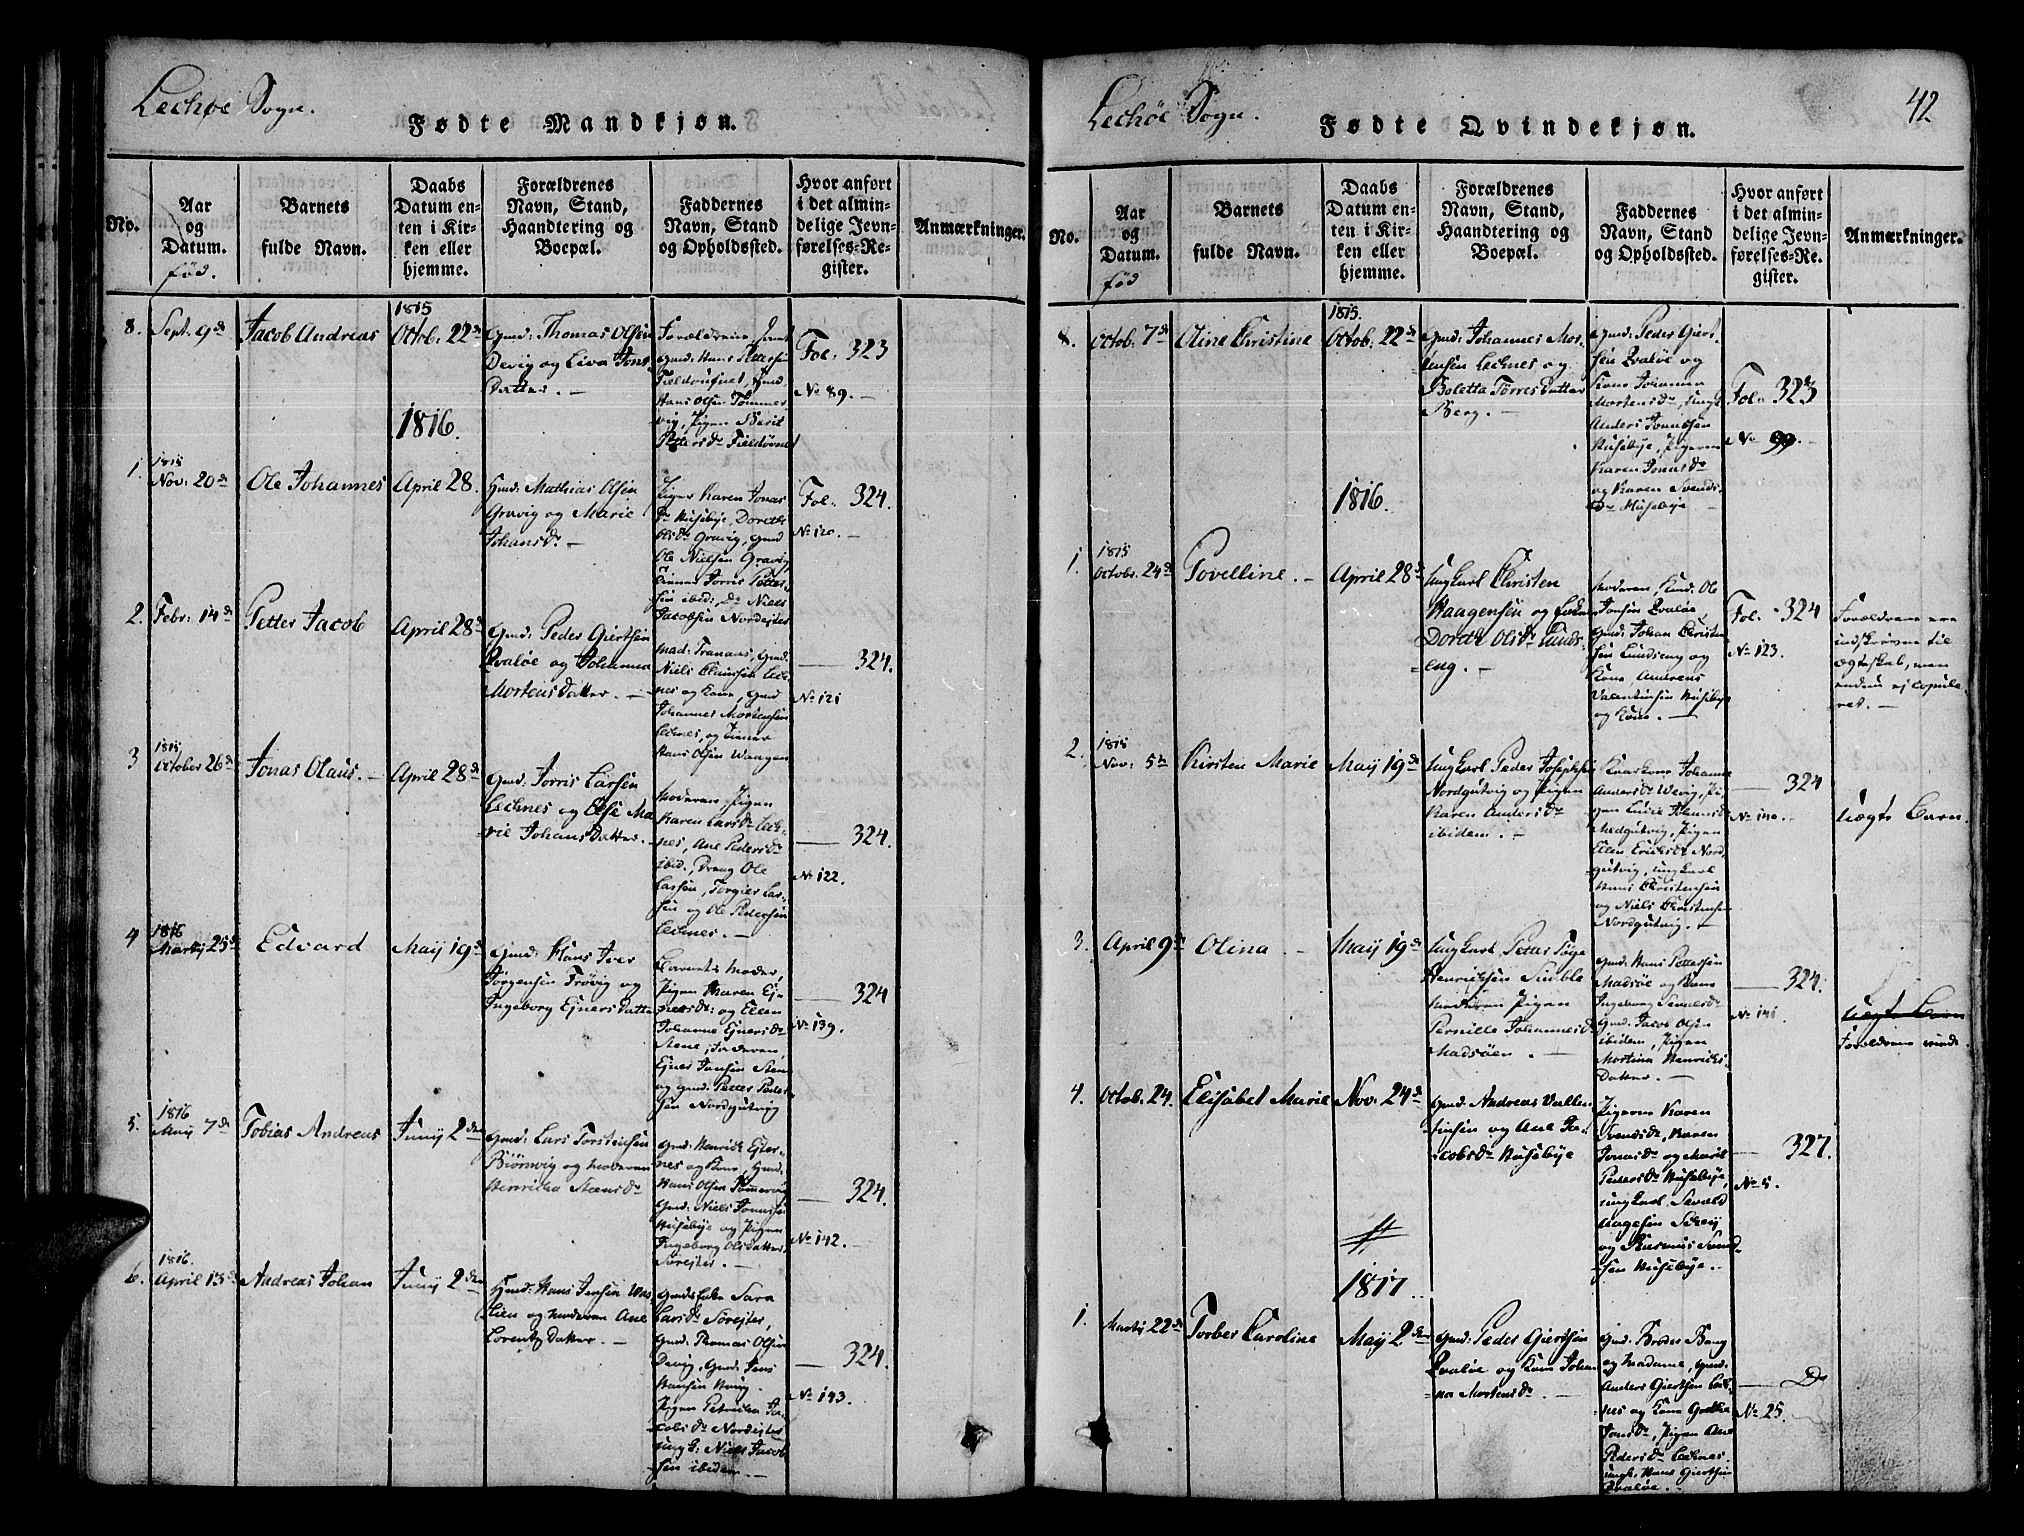 Lechøe Sogn.
Fødte Mandkjøn.
No.
Aar
og
Datum.
fød.
Barnets
fulde Navn.
Daabs
Datum en-
ten i Kir-
ken eller
hjemme.
Forældrenes
Navn, Stand,
Haandtering og
Boepæl.
Faddernes
Navn, Stand
og Opholdssted.
Hvor anført
i det almin-
delige Jevn-
førelses-Re-
gister.
Anmærkninger.
8.
Sept. 9de
Jacob Andreas
1815
Octob. 22de
Gmd: Thomas Olsen
Devig og Liva Jons
Datter. —
Forældrene, samt
Gmd: Hans Pettersen
Gmd
Hans Olsen Tømmer
vig, Pigen Berit
Pettersdr
Fol: 323
No 89. —
1816.
1.
1815
Nov: 20de
Ole Johannes
April 28.
Gmd: Mathias Olsen
Gravig og Marie
Johansdr. —
Piger Karen Jonas
Dr Husebye, Dorethe
Olsdr Gravig, Gmd
Ole Nielsen Gravig,
Torris Petter-
sen ibid:, Dr Niels
Jacobsen Nordejter
Fol: 324.
No 120. —
2.
Febr: 14de
Petter Jacob
April 28de
Gmd: Peder Giertsen
Qvaløe og Johanna
Mortens Datter. —
Mad: Tranaas, Gmd.
Niels Lech-
nes og Kone, Gmd
Johannes Mortensen
Lechnes, og
Hans Olsen Waagen
— 324.
No 121
3
1815
October 26de
Jonas Olaus. —
April 28de
Gmd: Torris Larsen
Lechnes og Else Ma
rie Johans Datter. —
Moderen, Pigen
Karen Larsdr Lech-
nes, Ane Pedersdr
ibid., Dreng Ole
Larsen, Torgier Lar-
sen og Ole Pedersen
Lechnes. —
— 324.
No 122.
4
1816
Martij 25de
Edvard
Maij 19de
Gmd: Hans Iver
Jørgensen Frøvig og
Ingeborg Ejners Datter
Barnets Moder,
Pigen Maren Ej-
nersdr: og Ellen
Johanne Ejnersdr
Stene, Faderen,
Ejner Jonsen Sten
og Gmd: Petter Peder
sen Nordgutvig
— 324
No 139.
5.
1816
Maij 7de
Tobias Andreas
Junij 2den
Gmd: Lars Torstensen
Biørnvig og Moderen
Henricka Stensdr
Gmd: Henrich Ejter-
nes og Kone, Gmd:
Hans Olsen Tømmervig
Gmd: Niels Jonnisen
Husebye og Pigen
Ingeborg Olsdatter
Sørejter. —
— 324.
No 142. —
6.
1816.
April 13de
Andreas Johan
Junij 2den
Gmd: Hans Jensen
Lien og Moderen Ane
Lorentz Datter. —
Sara
Larsdr Sørejter,
Gmd: Thomas Olsen
Devig, Gmd: Jens
Hansen
Pigen Petricka Ja-
cobsdr Nordejter
Ungk: Niels Jacob
sen ibidem. —
— 324.
No 143.
Lechøe Sogn.
42
Fødte Qvindekjøn.
No.
Aar
og
Datum.
fød
Barnets
fulde Navn.
Daabs
Datum en-
ten i Kir-
ken eller
hjemme.
Forældrenes
Navn, Stand,
Haandtering og
Boepæl.
Faddernes
Navn, Stand
og Opholdssted.
Hvor anført
i det almin-
delige Jevn-
førelses-Re-
gister.
Anmærkninger.
8.
Octob. 7de
Oline Christine
1815.
Octob. 22de
Gmd: Johannes Mor-
tensen Lechnes og
Boletta Torres Datter
Berg. —
Gmd: Peder Giert-
sen Qvaløe og
Kone Johanna
Mortensdr, Ungk:
Anders Jonnissen
Husebye, Pigerne
Karen Jonasdr
og Karen Svends-
Dr Husebye. —
Fol: 323
No 99. —
1816.
1.
1815
Octobr. 24de
Povelline. —
April 28de
Ungkarl Christen
Haagensen og
Dorthe Olsdr Lunds-
eng. —
Moderen, Gmd. Ole
Jonsen Qvaløe,
Gmd: Johan Christen
sen Lundseng og
Kone, Andreas
Valentinsen Husebye
og Kone. —
Fol. 324
No 123.
Forældrene ere
indskrevne til
ægteskab, men
endnu ej copule-
ret. —
2.
1815
Nov: 5te
Kirsten Marie
Maij 19de
Ungkarl Peder Josephsen
Nordgutvig og Pigen
Karen Andersdr
ibidem. —
Johanna
Andersdr Wevig, Pi-
gen Lucie Johannsdr
Medgutvig, Pigen
Ellen Ericksdr Nord
gutvig, Ungkarl
Hans Christensen
og Niels Christensen
Nordgutvig. —
— 324
No 140. —
Uægte Barn.
3.
April 9de
Olina —
Maij 19de
Ungkarl Petter Tøge
Henriksen
Moderen Pigen
Pernille Johannesdr
Madsøen. —
Gmd: Hans Pettersen
Madsøe og Kone
Ingeborg
Gmd: Jacob Olsen
ibidem, Pigen
Mortina Henrichs-
Datter. —
— 324.
No 141.
Uægte Barn
Forældrene
4.
Octob. 24.
Elisabet Marie
Nov. 24de
Gmd: Andreas Vallen
tinsen og Ane Ja-
cobsdr Husebye
Pigerne Karen
Svendsdr, Karen
Jonasdr og Marit
Pedersdr Husebye,
Ungkarl
Aagesen
og Rasmus
sen Husebye. —
— 327.
No 5.
1817.
1.
Martij 22de
Torber Caroline
Maij 2den
Gmd: Peder Giertsen
Qvaløe og Kone Johan
na Mortensdr. —
Gmd: Broder Bang
og Madame, Gmd:
Anders Giertsen Lech-
nes og Kone Grethe
Jonsdr, Pigen Ane
Pedersdr Lechnes
Ungk. Hans Giertsen
Qvaløe. —
— Do
No 25.